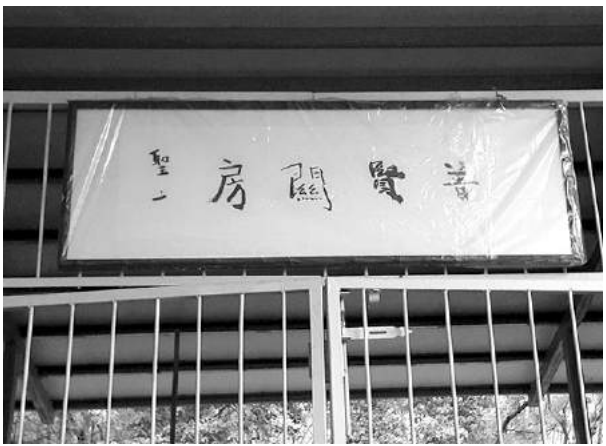 普賢關房
聖一